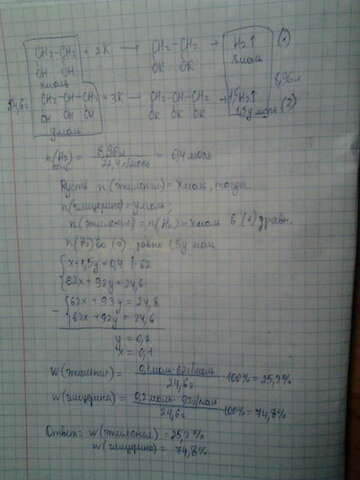 CH₂-CH₂ + 2K → CH₂-CH₂ + H₂↑ (1)
OH OH OK OK xмоль
xмоль 8,96л
24,6г CH₂-CH-CH₂ + 3K → CH₂-CH-CH₂ + 1,5H₂↑ (2)
OH OH OH OK OK OK 1,5y моль
yмоль
n(H₂) = 8,96л / 22,4 л/моль = 0,4 моль
Пусть n(гликоля) = xмоль, тогда
n(глицерина) = yмоль
n(гликоля) = n(H₂) = xмоль в (1) уравн.
n(H₂) во (2) равно 1,5y мол
{x+1,5y=0,4 |·62
{62x+92y=24,6
{62x+93y=24,8
- {62x+92y=24,6
y = 0,2
x = 0,1
W(гликоля) = 0,1моль·62г/моль / 24,6г ·100% = 25,2%
W(глицерина) = 0,2моль·92г/моль / 24,6г ·100% = 74,8%
Ответ: W(гликоля) = 25,2%
W(глицерина) = 74,8%